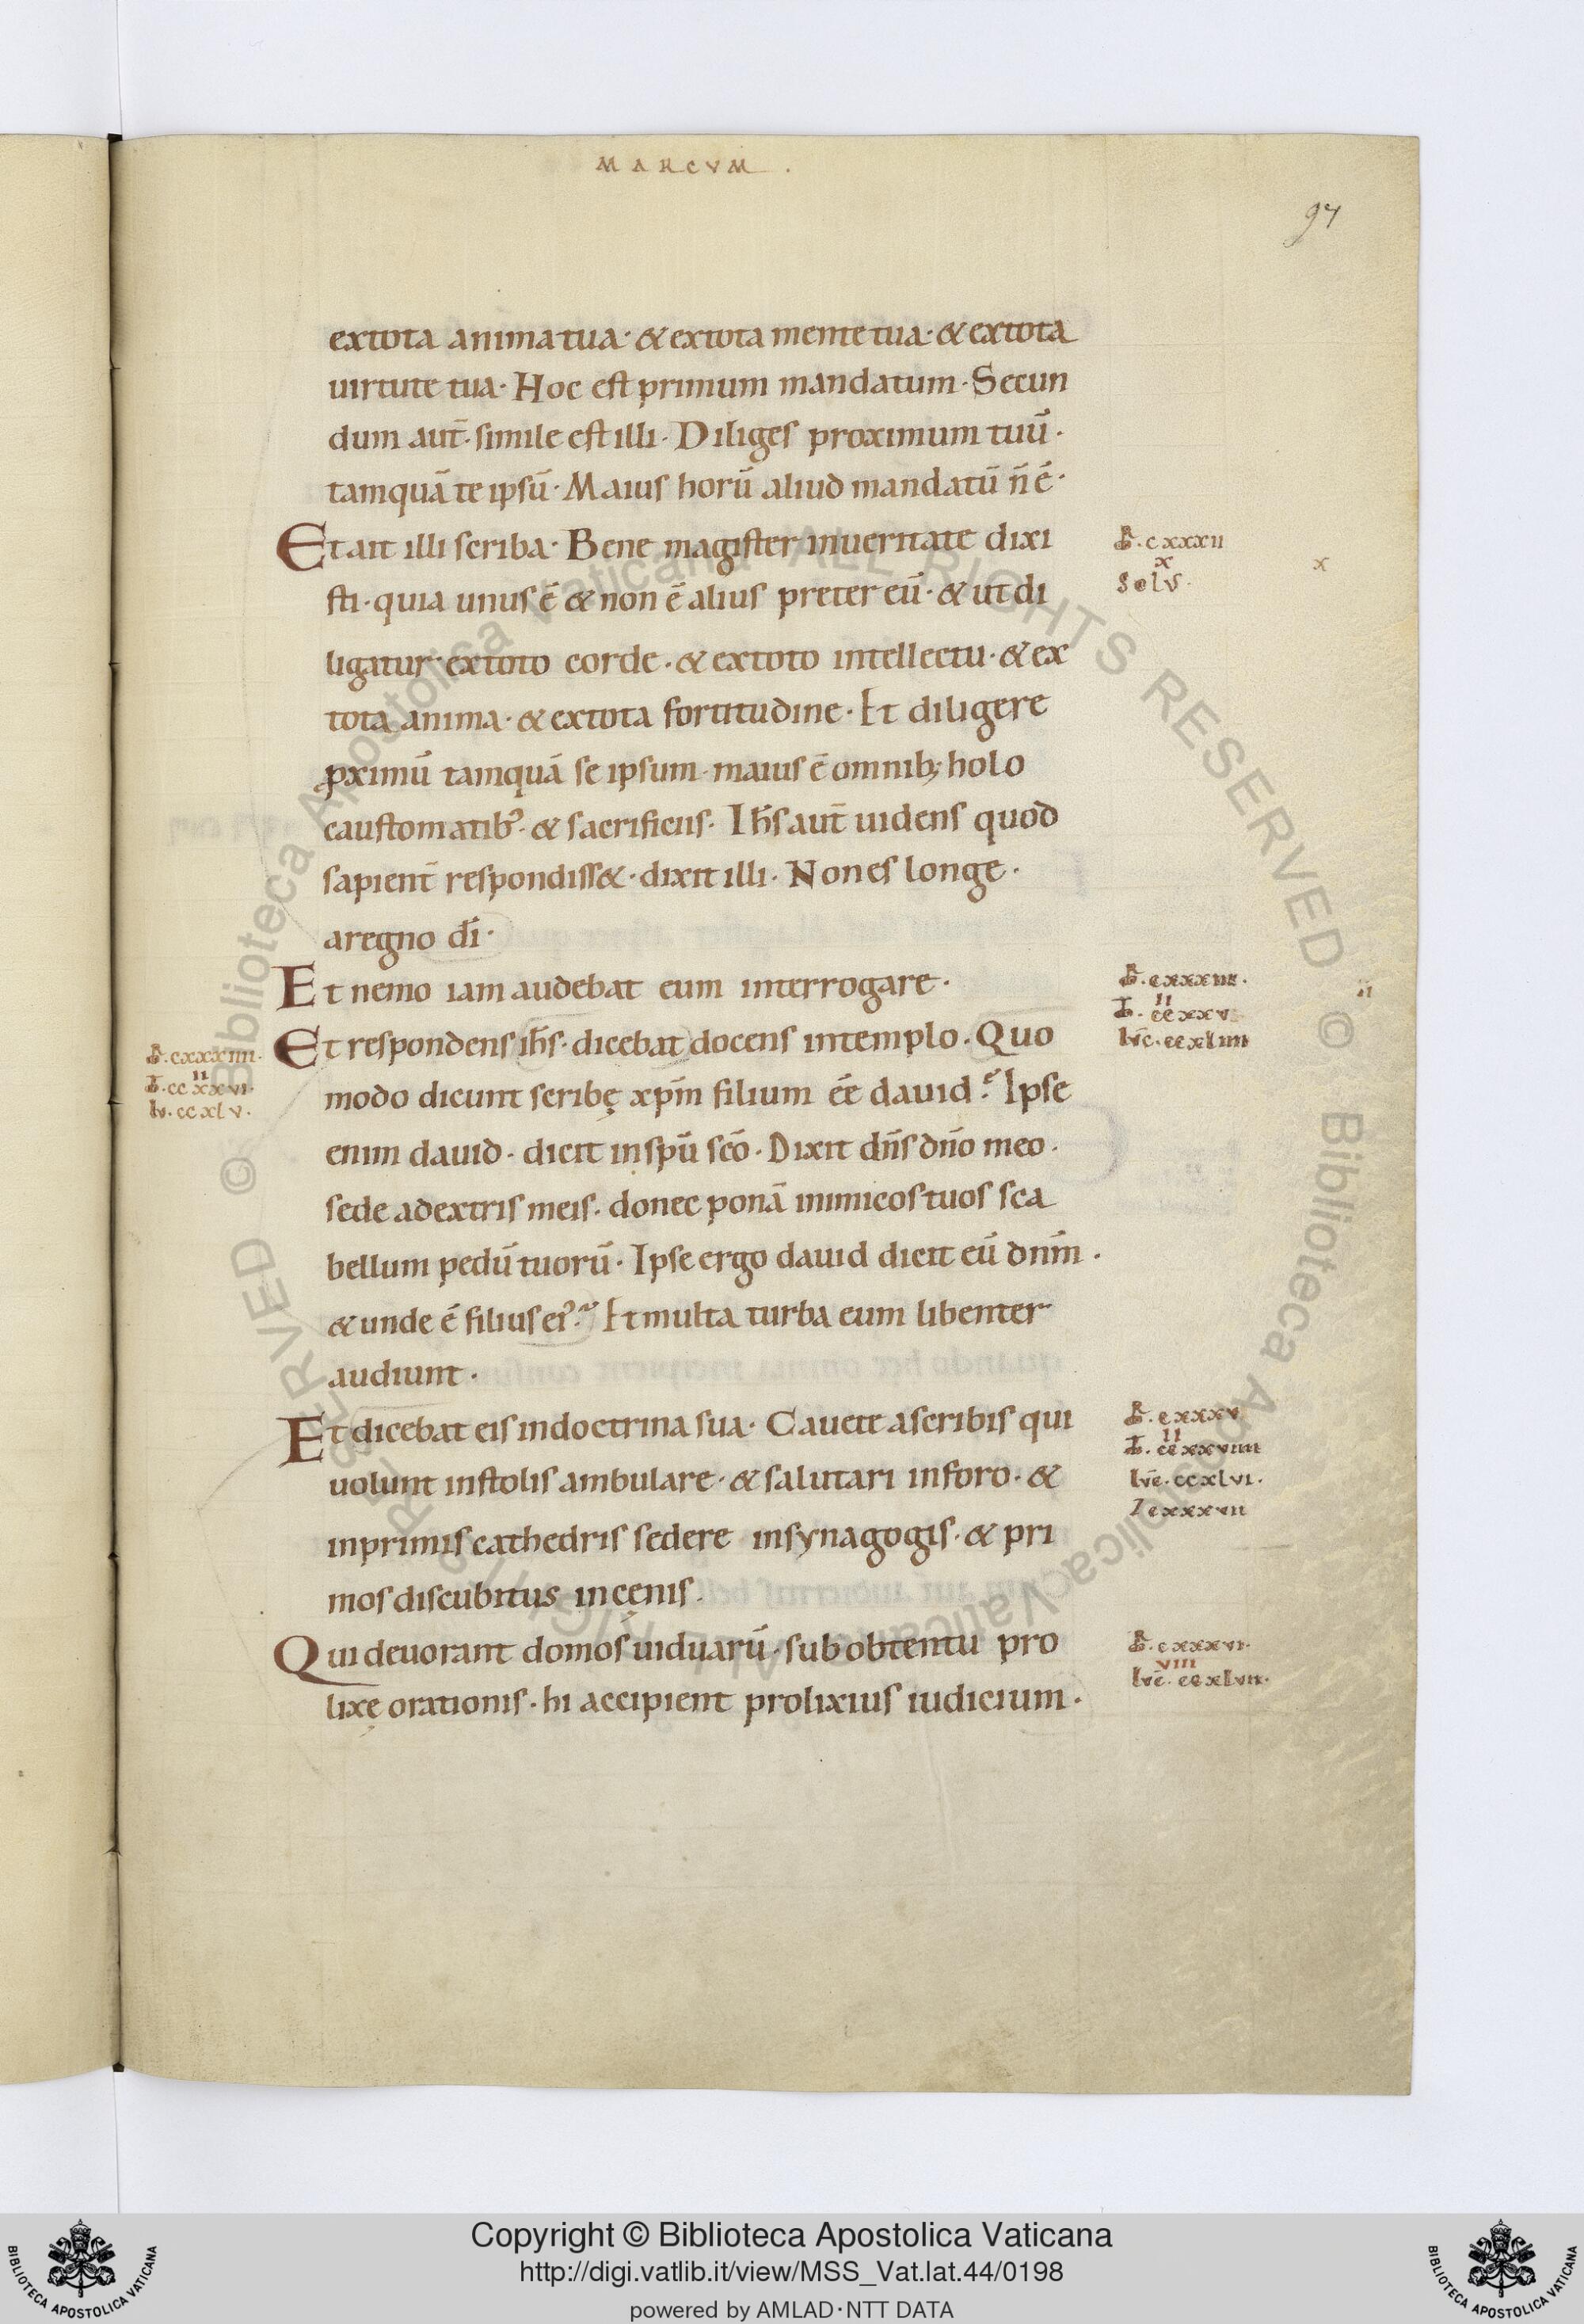 MARCVM .
97
extota animatua· & extota mente tua· & extota
uirtute tua· Hoc est primum mandatum· Secun
dum aut̄· simile est illi· Diliges proximum tuū·
tamquā te ipsū· Maius horū aliud mandatū n̄ ē·
Et ait illi scriba· Bene magister inueritate dixi
sti· quia unus ē & non ē alius preter eū· & ut di
ligatur extoto corde· & extoto intellectu· & ex
tota anima· & extota fortitudine· Et diligere
ꝓximū tamquā se ipsum· maius ē omnib; holo
caustomatib'· & sacrificiis· Ih̄s aut̄ uidens quod
sapient̄ respondiss&· dixit illi· Non es longe·
aregno dī·
Et nemo iam audebat eum interrogare·
Et respondens ih̄s· dicebat docens intemplo· Quo
modo dicunt scribę xp̄m filium ēē dauid? Ipse
enim dauid· dicit inspū scō· Dixit dn̄s dn̄o meo·
sede adextris meis· donec ponā inimicos tuos sca
bellum pedū tuorū· Ipse ergo dauid dicit eū dnm̄·
& unde ē filius ei'? Et multa turba eum libenter
audiunt·
Et dicebat eis indoctrina sua· Cauete ascribis qui
uolunt instolis ambulare· & salutari inforo· &
inprimis cathedris sedere insynagogis· & pri
mos discubitus incęnis·
Qui deuorant domos uiduarū· sub obtentu pro
lixę orationis· hi accipient prolixius iudicium·
cxxxii
x
Solus·
x
cxxxiii·
ii
ccxxv
luc̄· ccxliiii
cxxxiiii·
ii
ccxxvi·
lu· ccxlv·
cxxxv
ii
ccxxviiii
luc̄· ccxlvi·
cxxxvii
cxxxvi·
viii
luc̄· ccxlvii·
© Biblioteca Apostolica Vaticana ALL RIGHTS RESERVED
© Biblioteca Apostolica Vaticana ALL RIGHTS RESERVED
Copyright © Biblioteca Apostolica Vaticana
http://digi.vatlib.it/view/MSS_Vat.lat.44/0198
powered by AMLAD·NTT DATA
BIBLIOTECA APOSTOLICA VATICANA
BIBLIOTECA APOSTOLICA VATICANA